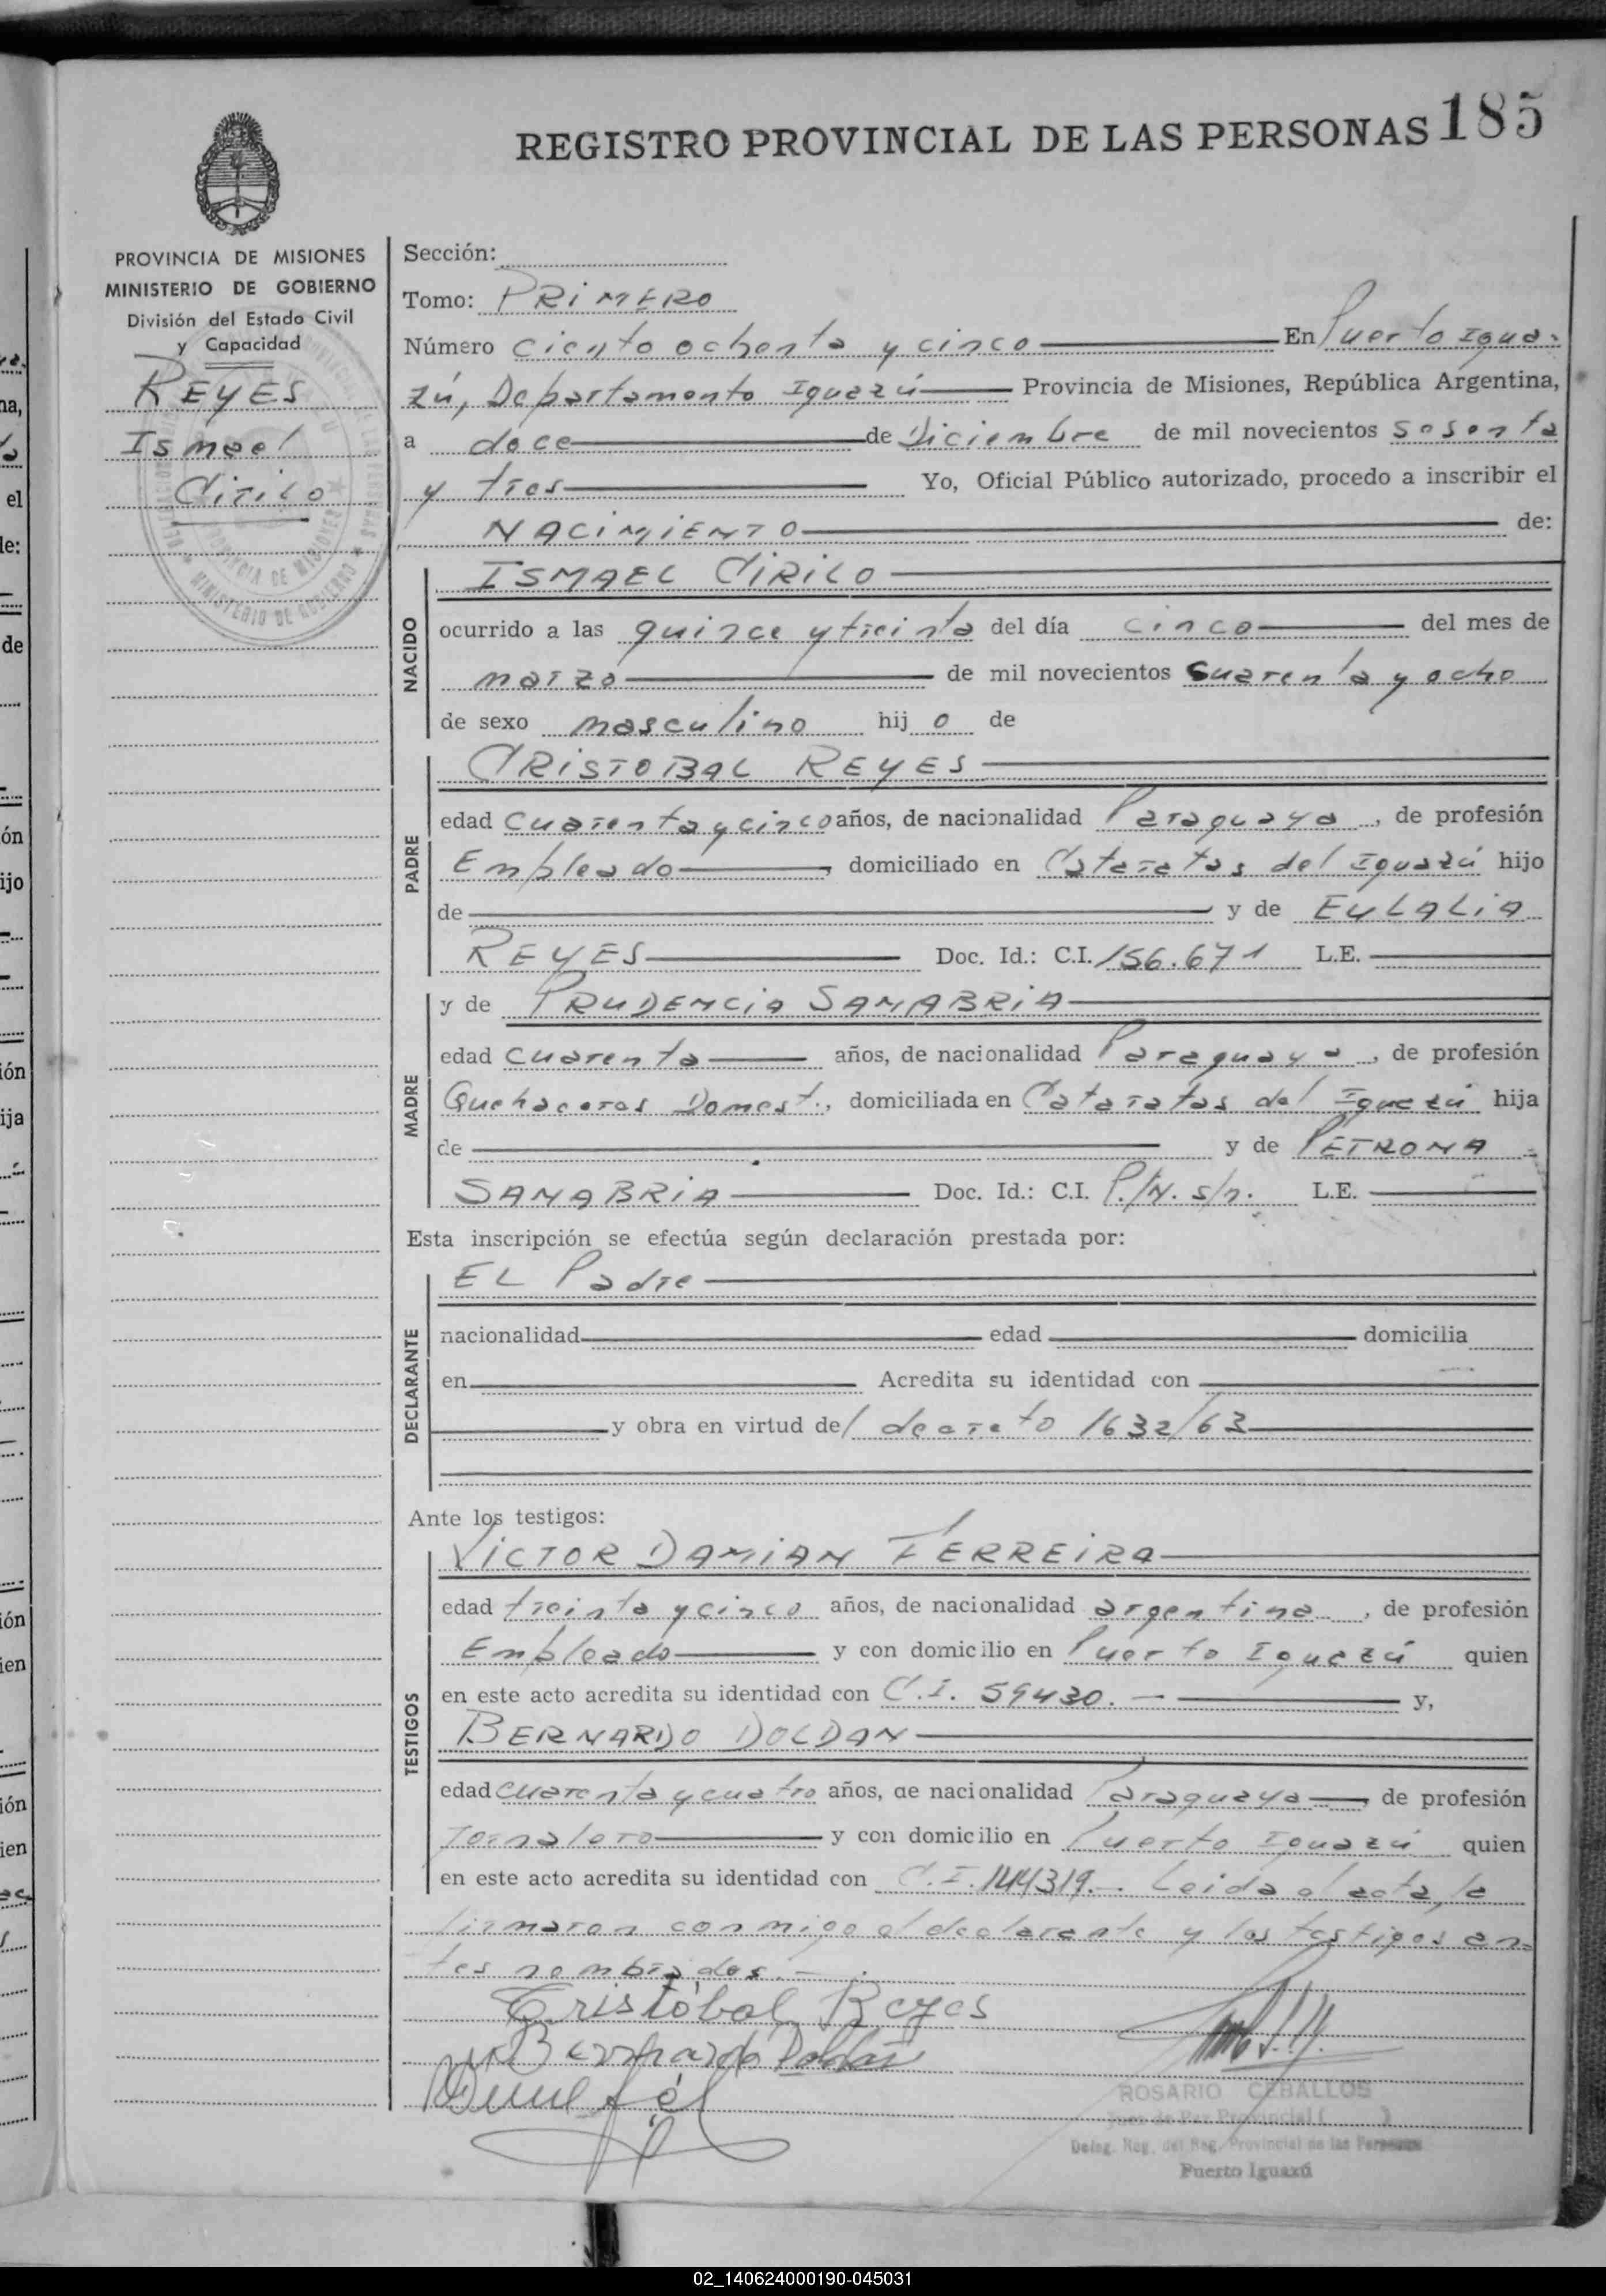 REGISTRO PROVINCIAL DE LAS PERSONAS 185
PROVINCIA DE MISIONES
MINISTERIO DE GOBIERNO
División del Estado Civil
y Capacidad
REYES
Ismael
Cirilo
Sección:
Tomo: PRIMERO
Número ciento ochenta y cinco En Puerto Igua-
zú, Departamento Iguazú Provincia de Misiones, República Argentina,
a doce de Diciembre de mil novecientos sesenta
y tres Yo, Oficial Público autorizado, procedo a inscribir el
NACIMIENTO de:
NACIDO
ISMAEL CIRILO
ocurrido a las quince y treinta del día cinco del mes de
marzo de mil novecientos cuarenta y ocho
de sexo masculino hij o de
PADRE
CRISTOBAL REYES
edad cuarenta y cinco años, de nacionalidad Paraguaya, de profesión
Empleado, domiciliado en Cataratas del Iguazú hijo
de y de EULALIA
REYES Doc. Id.: C.I. 156.671 L.E.
MADRE
y de PRUDENCIA SANABRIA
edad cuarenta años, de nacionalidad Paraguaya, de profesión
Quehaceres Domest., domiciliada en Cataratas del Iguazú hija
de y de PETRONA
SANABRIA Doc. Id.: C.I. P./N. s/n. L.E.
Esta inscripción se efectúa según declaración prestada por:
DECLARANTE
EL Padre
nacionalidad edad domicilia
en Acredita su identidad con
y obra en virtud del decreto 1632/63
Ante los testigos:
TESTIGOS
VICTOR DAMIAN FERREIRA
edad treinta y cinco años, de nacionalidad argentina, de profesión
Empleado y con domicilio en Puerto Iguazú quien
en este acto acredita su identidad con C.I. 59430.- y,
BERNARDO DOLDAN
edad cuarenta y cuatro años, de nacionalidad Paraguaya de profesión
Jornalero y con domicilio en Puerto Iguazú quien
en este acto acredita su identidad con C.I. 144319.- Leida el acta, la
firmaron conmigo el declarante y los testigos an-
tes nombrados.-
Cristóbal Reyes
Bernardo Doldan
ROSARIO CEBALLOS
Juez de Paz Provincial ( )
Deleg. Reg. del Reg. Provincial de las Personas
Puerto Iguazú
02_140624000190-045031